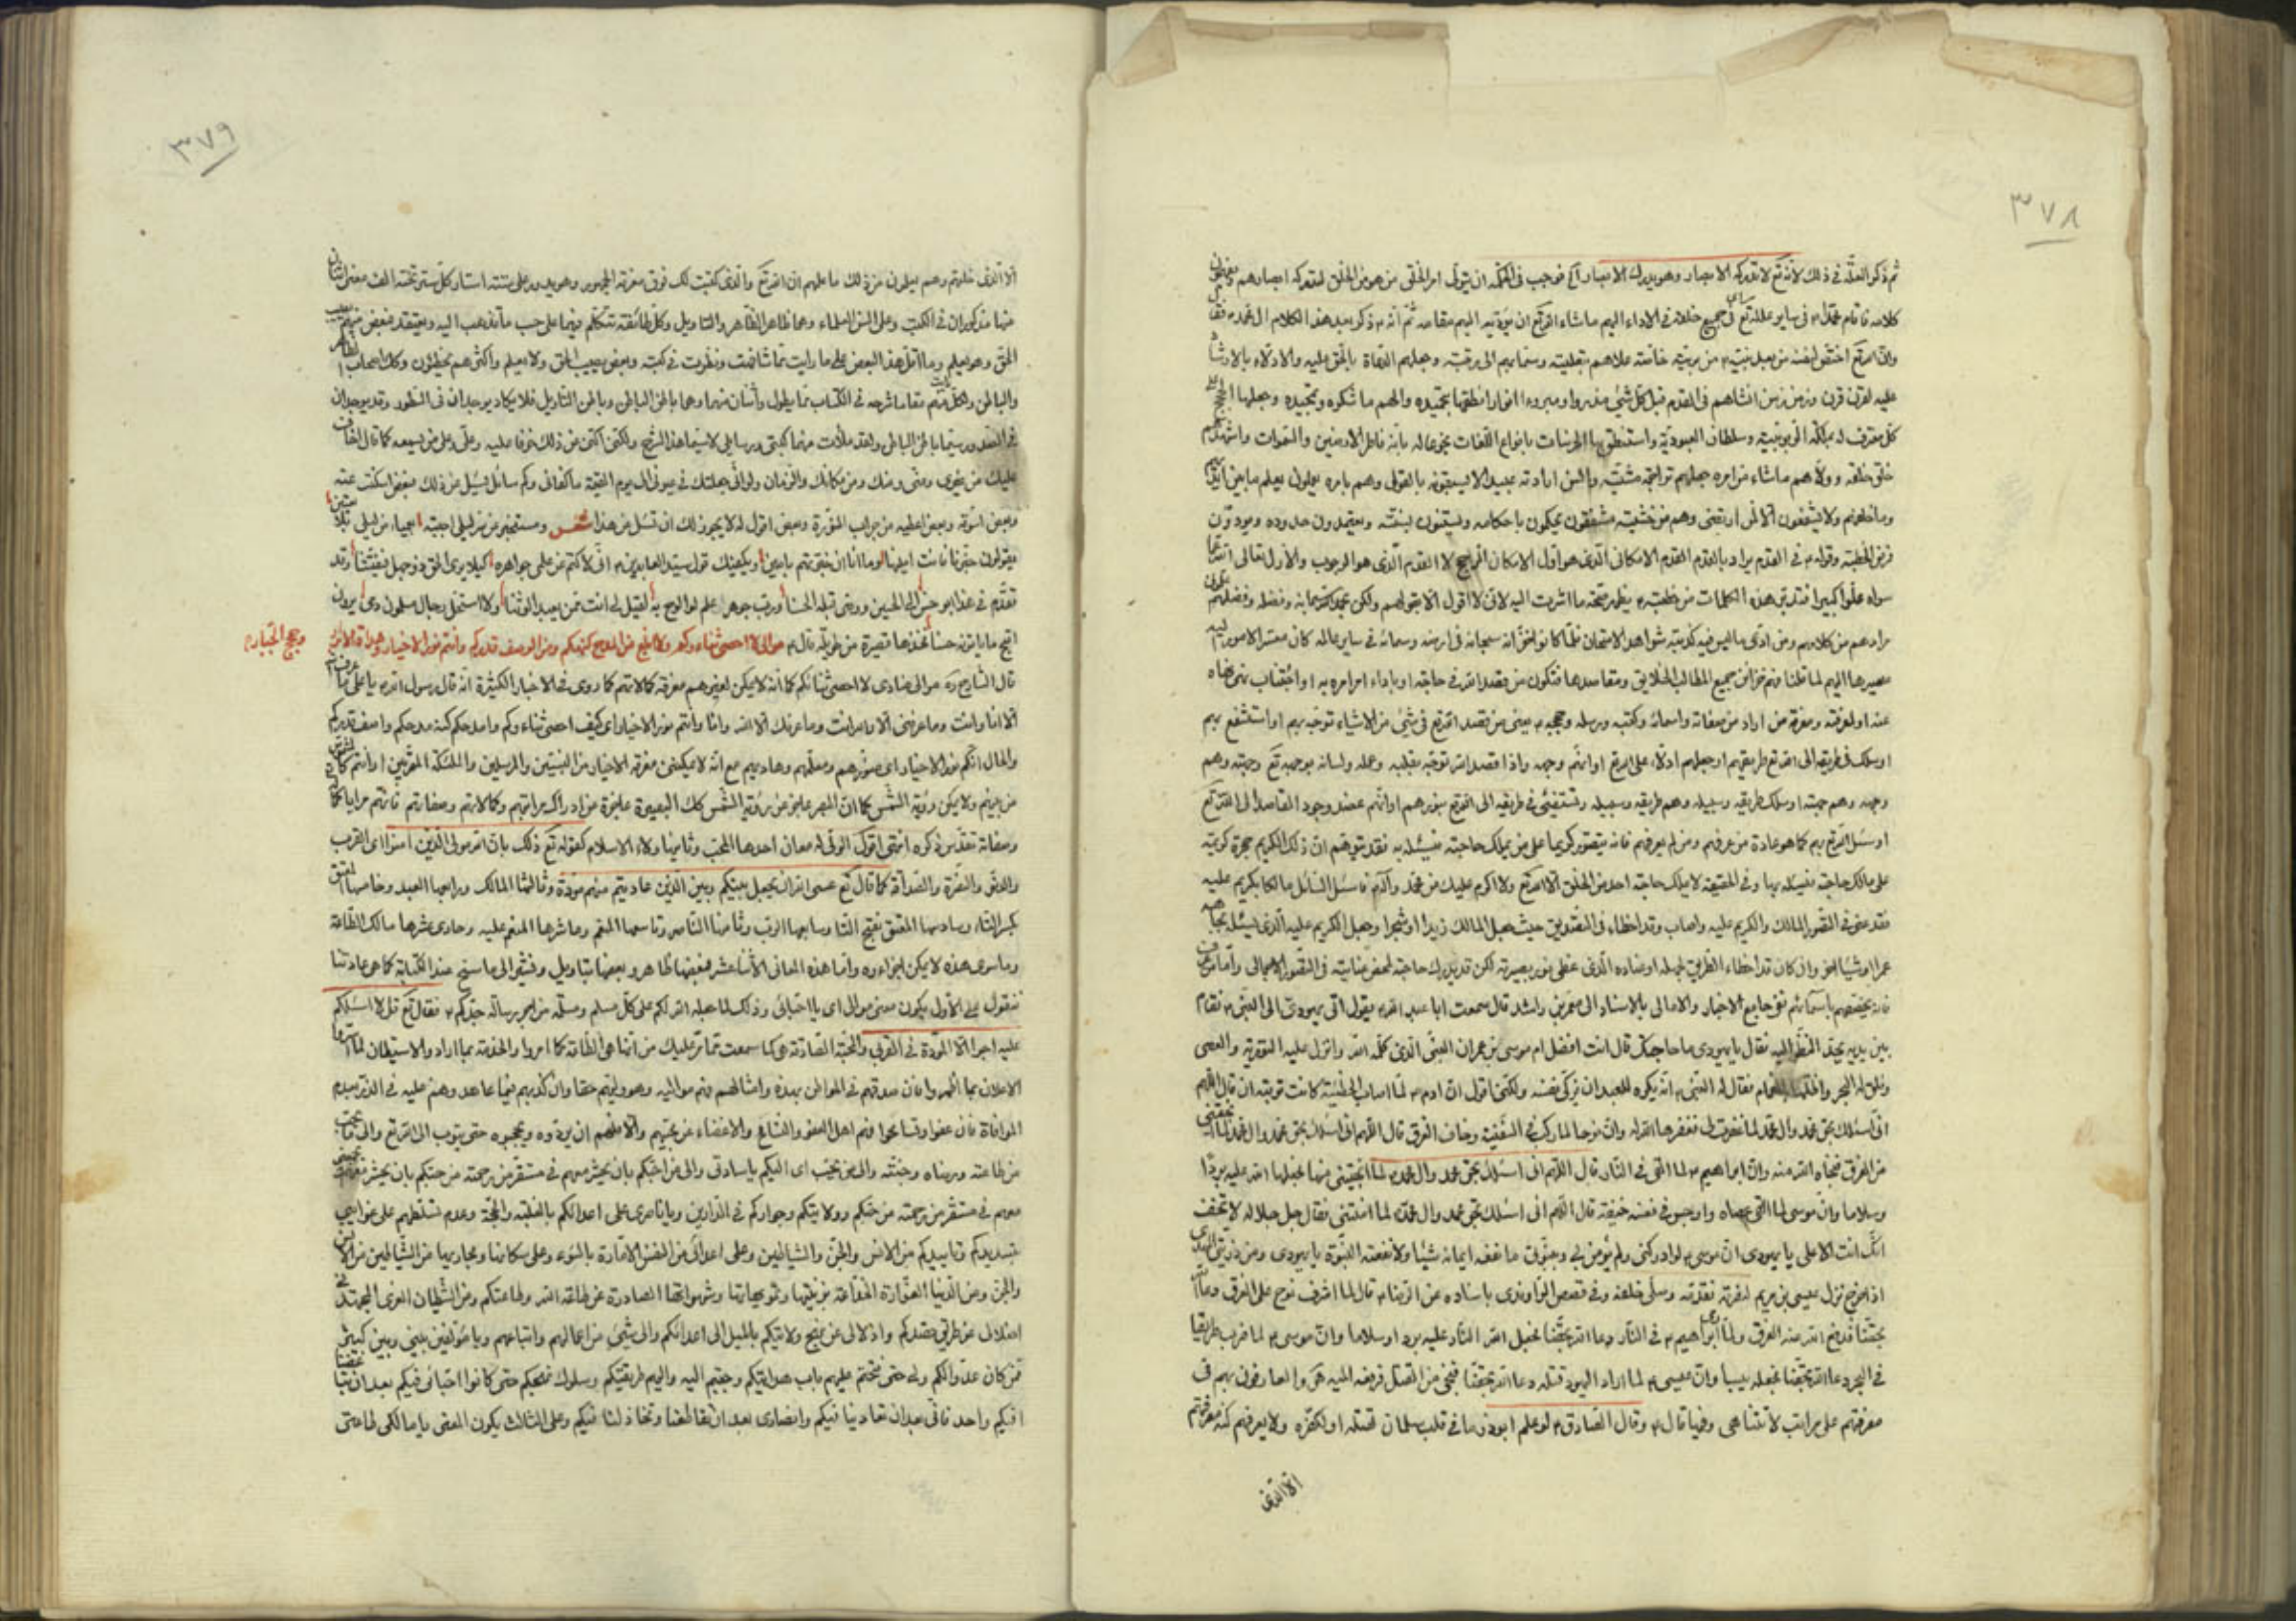 ٣٧٨
ثم ذكر العلة في ذلك لأنه تع لا تدركه الابصار وهو يدرك الابصار آه فوجب في الحكمة ان يتولى امر الخلق من هو من الخلق لتدركه ابصارهم
كلامه فاقام محمدا ص في ساير عالمه تع في جميع خلقه في الاداء اليهم ما شاء الله تع ان يؤديه اليهم مقامه ثم انه ذكر بعد هذا الكلام ال محمد ص فقال
وان الله تع اختص لنفسه من بعد نبيه ص من بريته خاصة علاهم بتعليته وسما بهم الى رتبته وجعلهم الدعاة بالحق عليه والادلاء بالارشاد
عليه لقرن قرن وزمن زمن انشاهم في القدم قبل كل شيء مذروء ومبروء انوارا انطقها بتحميده والهمها شكره وتمجيده وجعلها الحجج على
كل معترف له بملكة الربوبية وسلطان العبودية واستنطق بها الخرسات بانواع اللغات بخوعا له بانه فاطر الارضين والسموات واشهدهم
خلق خلقه وولاهم ماشاء من امره جعلهم تراجمة مشيته والسن ارادته عبيدا لا يسبقونه بالقول وهم بامره يعملون يعلم ما بين ايديهم
وما خلفهم ولا يشفعون الا لمن ارتضى وهم من خشيته مشفقون يحكمون باحكامه ويستنون بسنته ويعتمدون حدوده ويؤدون
فرض الخطبة وقوله ع في القدم يراد بالقدم القدم الامكاني الذي هو اول الامكان الراجح لا القدم الذي هو الوجوب والأزل تعالى الله عما
سواه علوا كبيرا فتدبر هذه الكلمات من خطبته ع يظهر صحة ما اشرت اليه لاني لا اقول الا بقولهم ولكن
مرادهم من كلامهم ومن ادعى ما ليس فيه كذبته شواهد الامتحان
مصيرها اليهم لما قلنا فهم خزائن جميع المطالب الخلايق ومقاصدها فتكون من قصد الله في حاجة او باداء امر امره به او اجتناب نهي نهاه
عنه او لمعرفته ومعرفة من اراد من صفاته واسمائه وكتبه ورسله وحججه يعني من قصد الله تع في شيء من الاشياء توجه بهم او استشفع بهم
او سلك في طريقه الى الله تع طريقهم او جعلهم ادلاء على الله تع او انهم وجهه واذا قصد الله توجه بقلبه وعمله ولسانه بوجهه تع وجهته وهم
وجهه وهم جهته او سلك طريقه وسبيله وهم طريقه وسبيله وتستضيء في طريقه الى الله تع بنورهم او انهم عضد وجود القاصد الى الله تع
او سئل الله تع بهم كما هو عادة من عرفهم ومن لم يعرفهم فانه يتصور كريما على من يملك حاجته فيسئله به فقد يتوهم ان ذلك الكريم حجرة كريمة
على مالك حاجته فيسئله بها وفي الحقيقة لا يملك حاجته احد من الخلق الا الله تع ولا اكرم عليك من محمد وآله ص فاسئل السائل مالكا بكريم عليه
فقد عنى في التصور المالك والكريم عليه واصاب وقد اخطاء في التصديق حيث جعل المالك زيدا او شجرا وجعل الكريم عليه الذي يسئله بجاهه
عمرا او شيئا اخر وان كان قد اخطاء الطريق لجهله او عناده الذي غطى نور بصيرته لكن قد يدرك حاجته لمحض عنايته في التصور الاجمالي واما من عرف
فانه يخصهم باسمائهم ففي جامع الاخبار والامالي بالاسناد الى معمر بن راشد قال سمعت ابا عبد الله ع يقول اتى يهودي الى النبي ص فقام
بين يديه يحد النظر اليه فقال يا يهودي ما حاجتك قال انت افضل ام موسى بن عمران النبي الذي كلمه الله وانزل عليه التورية والعصى
وفلق له البحر واظله الغمام فقال له النبي ص انه يكره للعبد ان يزكي نفسه ولكني اقول ان ادم ع لما اصاب الخطيئة كانت توبته ان قال اللهم
اني اسئلك بحق محمد وال محمد لما غفرت لي فغفرها الله له وان نوحا لما ركب في السفينة وخاف الغرق قال اللهم اني اسئلك بحق محمد وال محمد لما انجيتني
من الغرق فنجاه الله منه وان ابراهيم ع لما القي في النار قال اللهم اني اسئلك بحق محمد وال محمد لما انجيتني منها فجعلها الله عليه بردا
وسلاما وان موسى لما القى عصاه واوجس في نفسه خيفة قال اللهم اني اسئلك بحق محمد وال محمد لما امنتني فقال جل جلاله لا تخف
انك انت الاعلى يا يهودي ان موسى ع لو ادركني ولم يؤمن بي وبنبوتي ما نفعه ايمانه شيئا ولا نفعته النبوة يا يهودي ومن ذريتي المهدي
اذا خرج نزل عيسى بن مريم لنصرته فقدمه وصلى خلفه وفي قصص الراوندي باسناده عن الرضا ع قال لما اشرف نوح على الغرق دعا الله
بحقنا فدفع الله عنه الغرق ولما رمي ابراهيم ع في النار دعا الله بحقنا فجعل الله النار عليه بردا وسلاما وان موسى ع لما ضرب طريقا
في البحر دعا الله بحقنا فجعله يبسا وان عيسى ع لما اراد اليهود قتله دعا الله بحقنا فنجي من القتل فرفعه اليه هـ والعارفون بهم في
معرفتهم على مراتب لا تتناهى وفيها قال ص وقال الصادق ع لو علم ابوذر ما في قلب سلمان لقتله او لكفره ولا يعرفهم كنه معرفتهم
الا الذي
٣٧٩
الا الذي خلقهم وهم يعلمون من ذلك ما علمهم ان الله تع والذي كتبت لك فوق معرفة الجمهور
منها مذكوران في الكتب وعلى السن العلماء وهما ظاهر الظاهر والتاويل وكل طائفة تتكلم فيها على حسب ما تذهب اليه ويعتقد فبعض منهم يصيب
الحق وهو يعلم وما اقل هذا البعض على ما رايت ممن شافهت ونظرت في كتبه وبعض يصيب الحق ولا يعلم واكثرهم يخطئون وكل اصحاب الظاهر
والباطن ولكل منهم مقاما شرحه في الكتاب مما يطول واثنان منهما وهما باطن الباطن وباطن التاويل فلا يكاد يوجدان في السطور وقد يوجدان
في الصدور سيما باطن الباطن ولقد ملأت منهما كتبي ورسايلي لا سيما هذا الشرح ولكني اكتم من ذلك خوفا عليه وعلي وعلى من يسمعه كما قال الشاعر
عليك من غيري ومني ومنك ومن مكانك والزمان ولو اني جعلتك في عيوني الى يوم القيمة ما كفاني وكم سائل يسئل عن ذلك فبعض اسكت عنه
وبعض اشوقه وبعض اعطيه من جواب المؤزرة وبعض اقول له لا يجوز لك ان تسئل عن هذا شعر ومستخبر عن سر ليلى اجبته بعمياء من ليلى بلا تعيين
يقولون خبرنا فانت امينها وما انا ان خبرتهم بامين ويكفيك قول سيد العابدين ع اني لاكتم من علمي جواهره كيلا يرى الحق ذو جهل فيفتتنا وقد
تقدم في هذا ابو حسن الى الحسين ووصى قبله الحسنا ورب جوهر علم لو ابوح به لقيل لي انت ممن يعبد الوثنا ولاستحل رجال مسلمون دمي يرون
اقبح ما ياتونه حسنا فخذها قصيرة من طويلة قال ع موالي لا احصي ثناءكم ولا ابلغ من المدح كنهكم ومن الوصف قدركم وانتم نور الاخيار وهداة الابرار
وحجج الجبار
قال الشارح ره موالي منادى لا احصي ثنائكم كما انه لا يمكن لغيرهم معرفة كمالاتهم كما روى في الاخبار الكثيرة انه قال رسول الله ص يا علي ما عرف الله
الا انا وانت وما عرفني الا الله وانت وما عرفك الا الله وانا وانتم نور الاخيار اي كيف احصي ثناءكم وامدحكم كنه مدحكم واصف قدركم
والحال انكم نور الاخيار اي منورهم ومعلمهم وهاديهم مع انه لا يمكنني معرفة الاخيار من النبيين والمرسلين والملئكة المقربين او انتم كالشمس
من بينهم ولا يمكن رؤية الشمس كما ان البصر عاجز عن رؤية الشمس كك البصيرة عاجزة عن ادراك مراتبهم وكمالاتهم وصفاتهم فانهم مرايا كمالات الله
وصفاته تقدس ذكره انتهى اقول الولي له معان احدها المحب وثانيها ولاء الاسلام كقوله تع ذلك بان الله مولى الذين امنوا اي القرب
والدنو والنصرة والصداقة كما قال تع عسى الله ان يجعل بينكم وبين الذين عاديتم منهم مودة وثالثها المالك ورابعها العبد وخامسها المعتق
بكسر التاء وسادسها المعتق بفتح التا وسابعها الرب وثامنها الناصر وتاسعها المنعم وعاشرها المنعم عليه وحادي عشرها مالك الطاعة
وما سوى هذه لا يمكن اجراءه واما هذه المعاني الأثنا عشر فبعضها ظاهر وبعضها بتاويل ونشير الى ما سنح عند الكتابة كما هي عادتنا
فنقول على الأول يكون معنى موالي اي يا احبائي وذلك لما جعله الله لكم على كل مسلم ومسلمة من اجر رسالة جدكم ص فقال تع قل لا اسئلكم
عليه اجرا الا المودة في القربى والمحبة الصادقة هي كما سمعت مما قرء عليك من انها هي الطاعة كما امروا والخدمة بما اراد والاستبطان لما اسروا
الاعلان بما اظهروا فان صدقهم في المواطن بهذه وامثالهم فهم مواليه وهو وليهم حقا وان كذبهم فيما عاهدوهم عليه في الذر بعدم
الموافاة فان عفوا وتسامحوا فهم اهل العفو والتسامح والاغضاء عن محبيهم والا فلهم ان يردوه ويحجبوه حتى يتوب الى الله تع والى ما يحب
من طاعته ورضاه وجنته والى من يحب اي اليكم يا سادتي والى من احبكم بان يحشر معهم في مستقر من رحمته من حبكم بان يحشر
معهم في مستقر من رحمته من حبكم وولايتكم وجواركم في الدارين ويا ناصري على اعدائكم بالغلبة والحجة وعدم تسلطهم على غوايتي
بتسديدكم وتاييدكم من الانس والجن والشياطين وعلى اعدائي من النفس الامارة بالسوء وعلى سكانها ومجاريها من الشياطين من الانس
والجن ومن الدنيا الغرارة الخداعة بزينتها وتمويهاتها وشهواتها الصادرة عن طاعة الله وطاعتكم ومن الشيطان الغوي المجتهد في
اضلالي عن طريق قصدكم واذلالي عن نهج ولايتكم بالميل الى اعدائكم والى شيء من اعمالهم واتباعهم ويا مؤلفين بيني وبين كبير
ممن كان عدوا لكم ولي حتى فتحتم عليهم باب هدايتكم وجبتم اليه واليهم طريقتكم وسلوك نهجكم حتى كانوا احبائي فيكم بعد ان تباغضنا
افيكم واحد فاني بعد ان تعادينا فيكم وانصاري بعد ان تقاطعنا وتخاذلنا فيكم وعلى الثالث يكون المعنى يا مالكي طاعتي